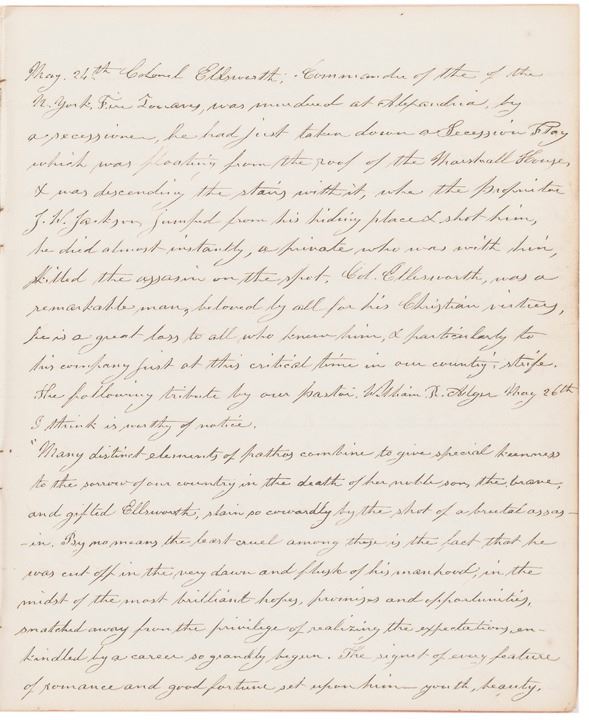 May. 24th Colonel Ellsworth, Commander of the of the
N. York, Fire Zouaves, was murdered at Alexandria, by
a secessioner, he had just taken down a Secession Flag
which was floating from the roof of the Marshall House,
& was descending the stairs with it, whe the Proprietor
J. W. Jackson, jumped from his hiding place & shot him,
he died almost instantly, a private who was with him,
killed the assasin on the spot, Col. Ellesworth, was a
remarkable man, beloved by all for his Christian virtues,
he is a great loss to all who knew him, & particularly to
his company just at this critical time in our country's strife.
The following tribute by our pastor. William R. Alger May 26th
I think is worthy of notice.
"Many distinct elements of pathos combine to give special keenness
to the sorrow of our country in the death of her noble son, the brave,
and gifted Ellsworth, slain so cowardly by the shot of a brutal assas-
-in. By no means the least cruel among these is the fact that he
was cut off in the very dawn and flush of his manhood, in the
midst of the most brilliant hopes, promises and opportunities,
snatched away from the privilege of realizing the expectations, en-
kindled by a career so grandly begun. The signet of every feature
of romance and good fortune set upon him — youth, beauty,